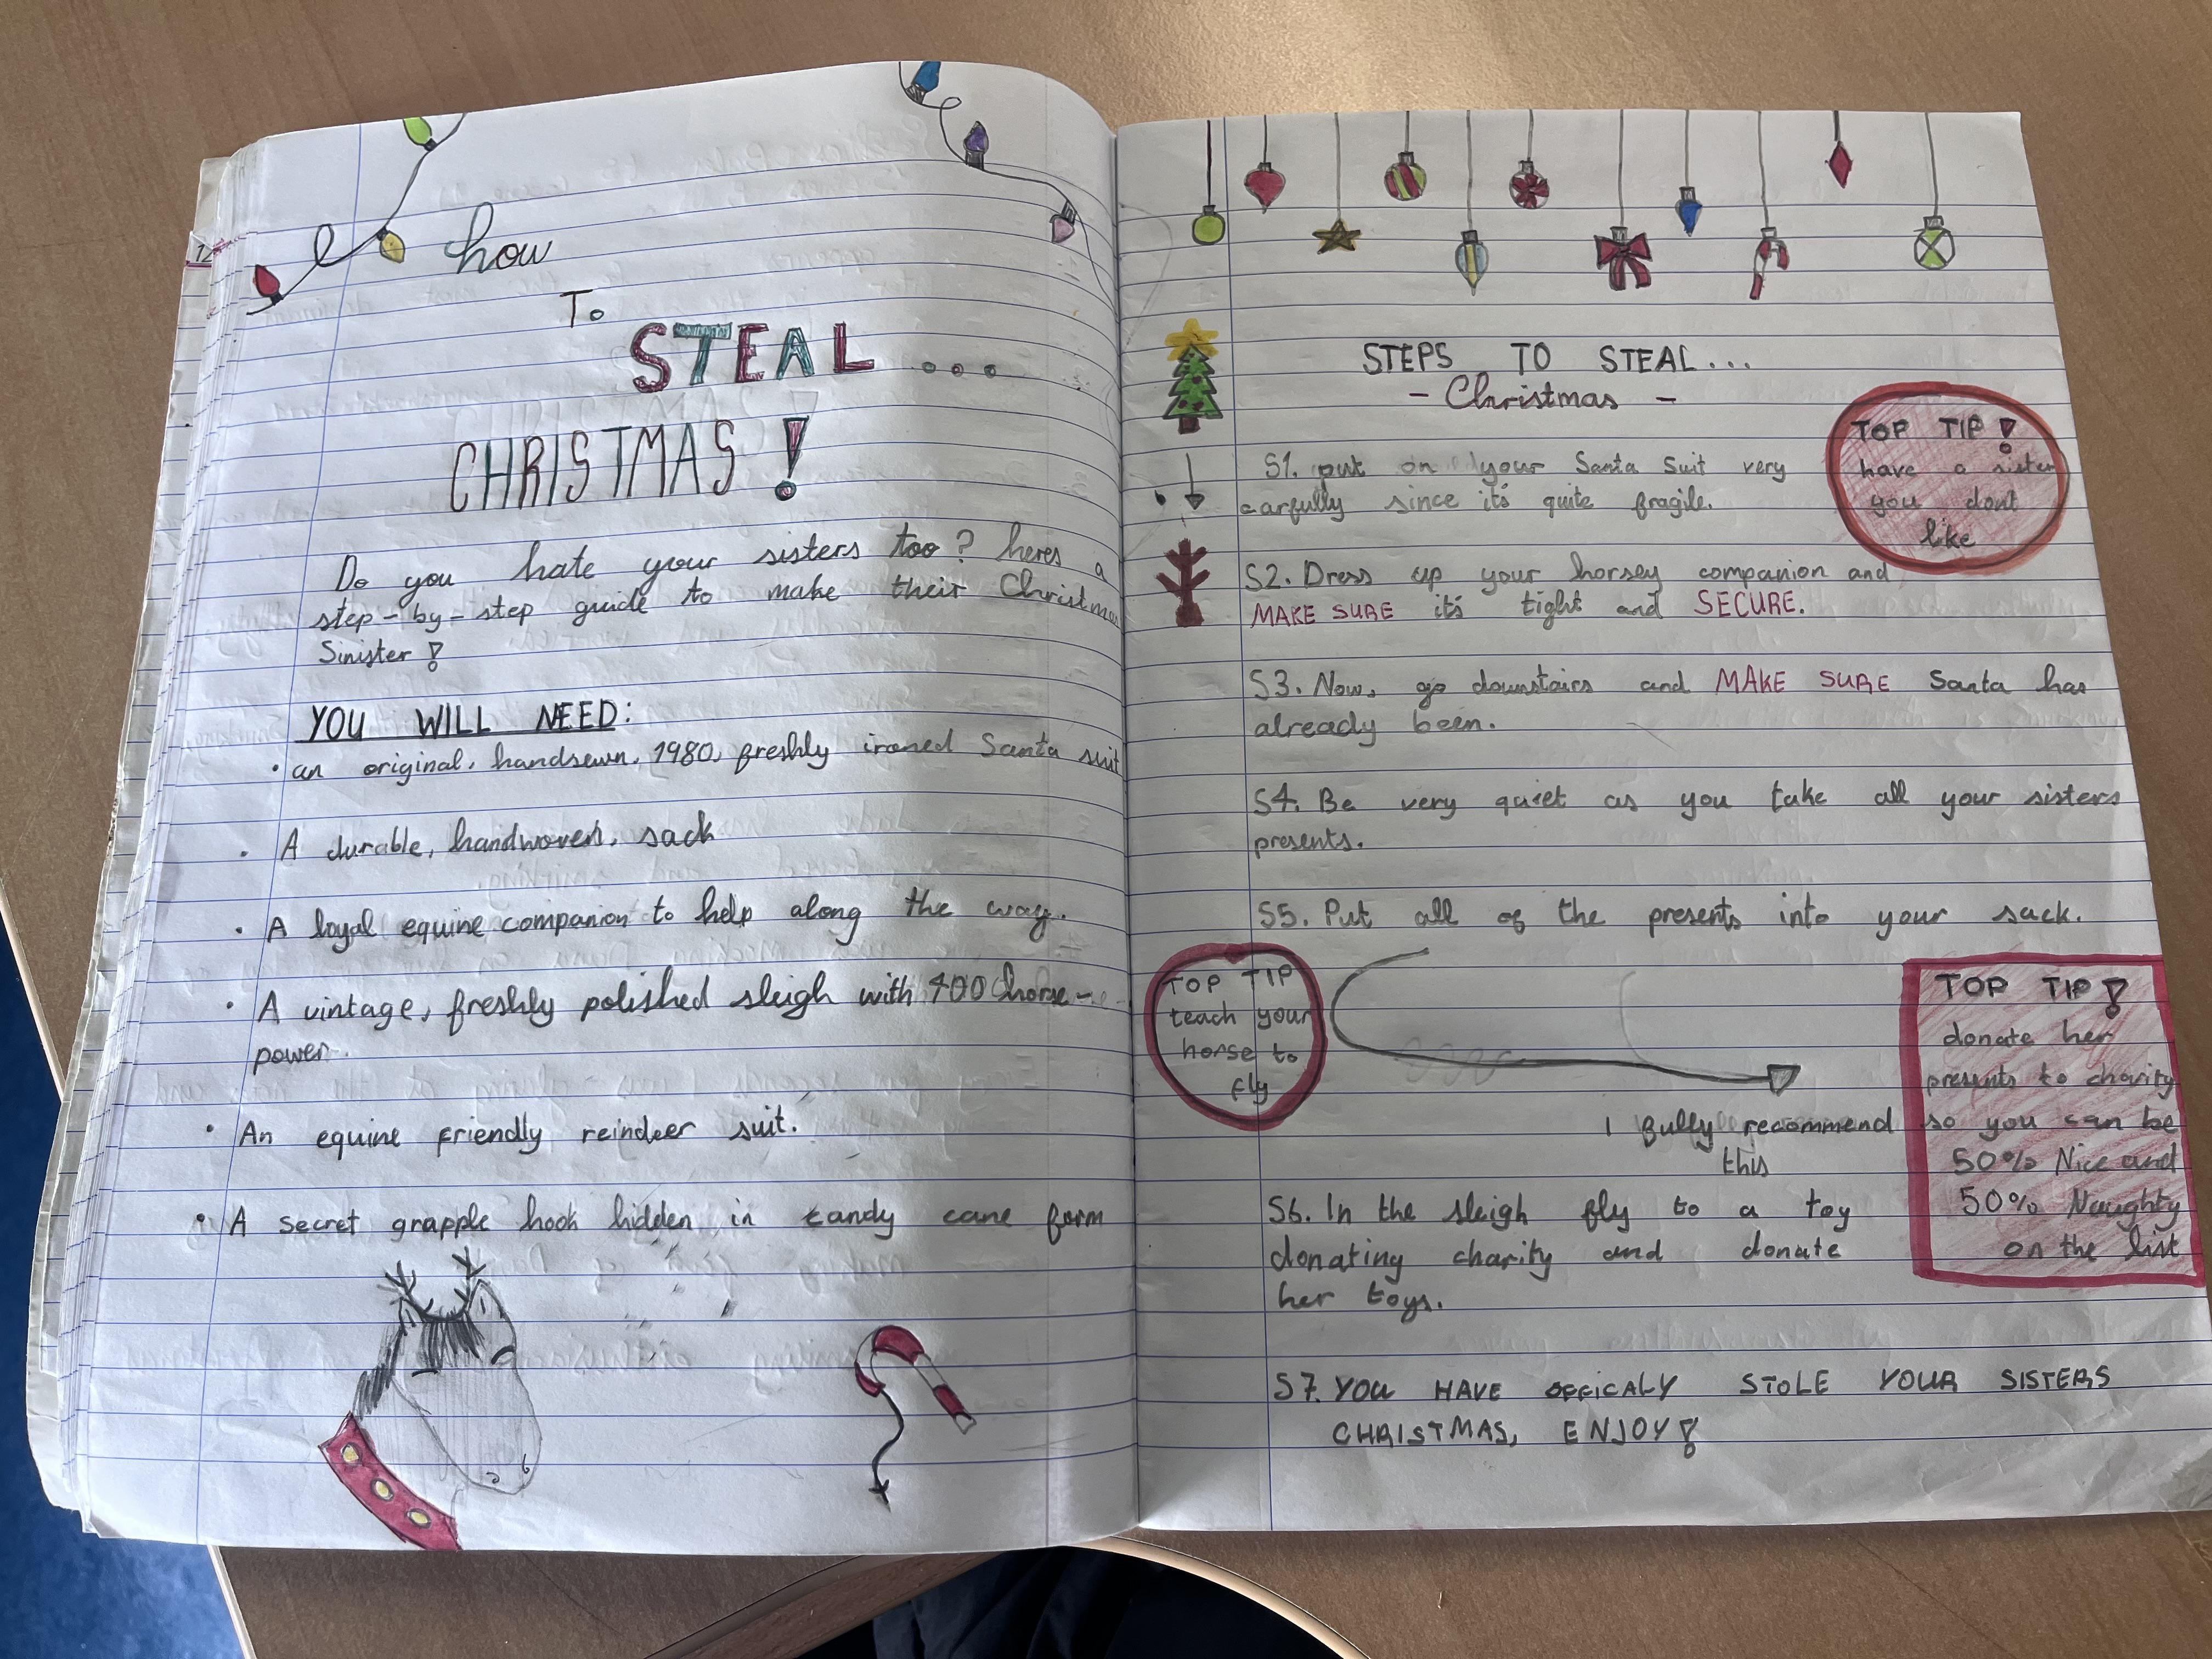 how
To
STEAL...
CHRISTMAS!
Do you hate your sisters too? heres a
step-by-step guide to make their Christmas
Sinister!
YOU WILL NEED:
• an original, handsewn, 1980, freshly ironed Santa suit
• A durable, handwoven, sack
• A loyal equine companion to help along the way.
• A vintage, freshly polished sleigh with 400 horse-
power.
• An equine friendly reindeer suit.
• A secret grapple hook hidden in candy cane form
STEPS TO STEAL...
- Christmas -
TOP TIP!
have a sister
you dont
like
S1. put on your Santa suit very
carfully since it's quite fragile.
S2. Dress up your horsey companion and
MAKE SURE it's tight and SECURE.
S3. Now, go downstairs and MAKE SURE Santa has
already been.
S4. Be very quiet as you take all your sisters
presents.
S5. Put all of the presents into your sack.
TOP TIP
teach your
horse to
fly
I fully recommend
this
TOP TIP!
donate her
presents to charity
so you can be
50% Nice and
50% Naughty
on the list
S6. In the sleigh fly to a toy
donating charity and donate
her toys.
S7. YOU HAVE OFFICALY STOLE YOUR SISTERS
CHRISTMAS, ENJOY!